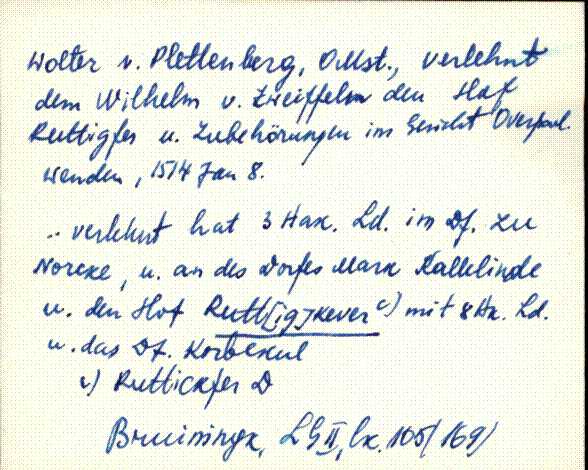 Wolter v. Plettenberg, OMst., verlehnt
dem Wilhelm v. Zweiffeln den Hof
Ruttigfer u. Zubehörungen im Gericht
wenden, 1514 Jan 8.
.. verlehnt hat 3 Hak. Ld. im Df. zu
Norcke, u. an des Dorfes Mark Kallelinde
u. den Hof Rutt[ig]kever c) mit 8 Hk. Ld.
u. das Df. Korbekul
c) Ruttickfer D
Bruiningk, LG II, 105 (169)